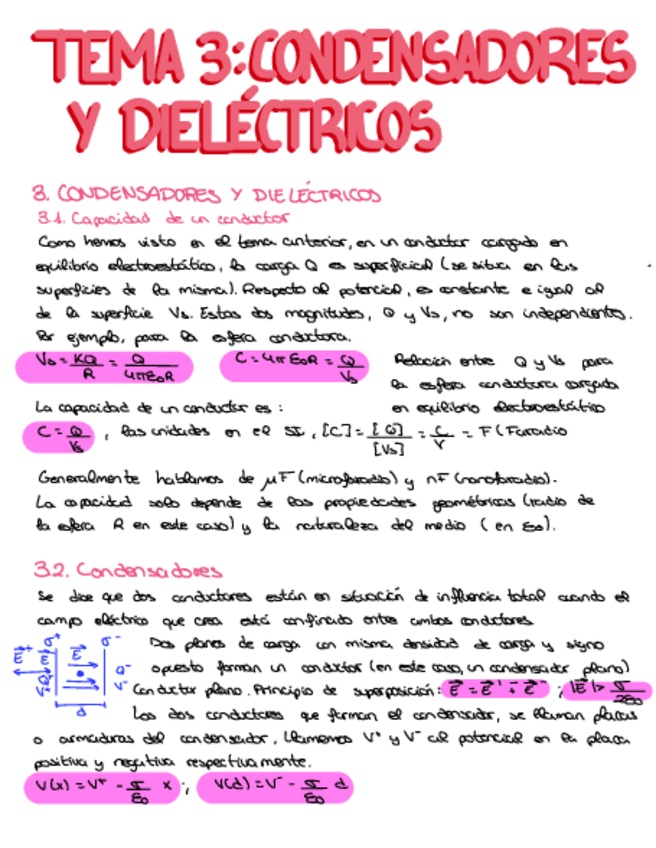 TEMA 3: CONDENSADORES
Y DIELÉCTRICOS
3. CONDENSADORES Y DIELÉCTRICOS
3.1. Capacidad de un conductor
Como hemos visto en el tema anterior, en un conductor cargado en
equilibrio electroestático, la carga Q es superficial (se situa en las
superficies de la misma). Respecto al potencial, es constante e igual al
de la superficie Vs. Estas dos magnitudes, Q y Vs, no son independientes.
Por ejemplo, para la esfera conductora.
Vs = KQ/R = Q/4πε0R
C = 4πε0R = Q/Vs
Relación entre Q y Vs para
la esfera conductora cargada
en equilibrio electroestático
La capacidad de un conductor es:
C = Q/Vs, las unidades en el SI, [C] = [Q]/[Vs] = C/V = F (Faradio
Generalmente hablamos de μF (microfaradio) y nF (nanofaradio).
La capacidad solo depende de las propiedades geométricas (radio de
la esfera R en este caso) y la naturaleza del medio (en ε0).
3.2. Condensadores
Se dice que dos conductores están en situación de influencia total cuando el
campo eléctrico que crea está confinado entre ambos conductores
Dos planos de carga con misma densidad de carga y signo
opuesto forman un conductor (en este caso, un condensador plano)
Conductor plano. Principio de superposición: E = E' + E⁻ ; |E| = σ/2ε0
Los dos conductores que forman el condensador, se llaman placas
o armaduras del condensador, llamemos V⁺ y V⁻ al potencial en la placa
positiva y negativa respectivamente.
V(x) = V⁺ - σ/ε0 x ; V(d) = V⁻ - σ/ε0 d
σ⁺
σ⁻
E
Q⁻
V⁻
d